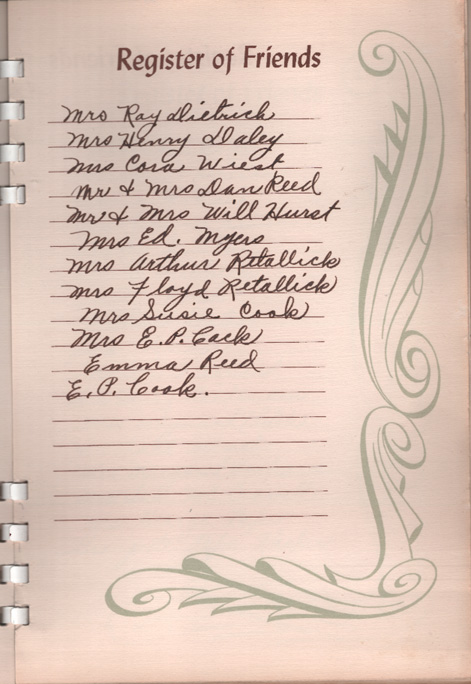 Register of Friends
Mrs Ray Dietrich
Mrs Henry Daley
Mrs Cora Wiest
Mr & Mrs Dan Reed
Mr & Mrs Will Hurst
Mrs Ed. Myers
Mrs Arthur Retallick
Mrs Floyd Retallick
Mrs Susie Cook
Mrs E.P. Cook
Emma Reed
E.P. Cook.